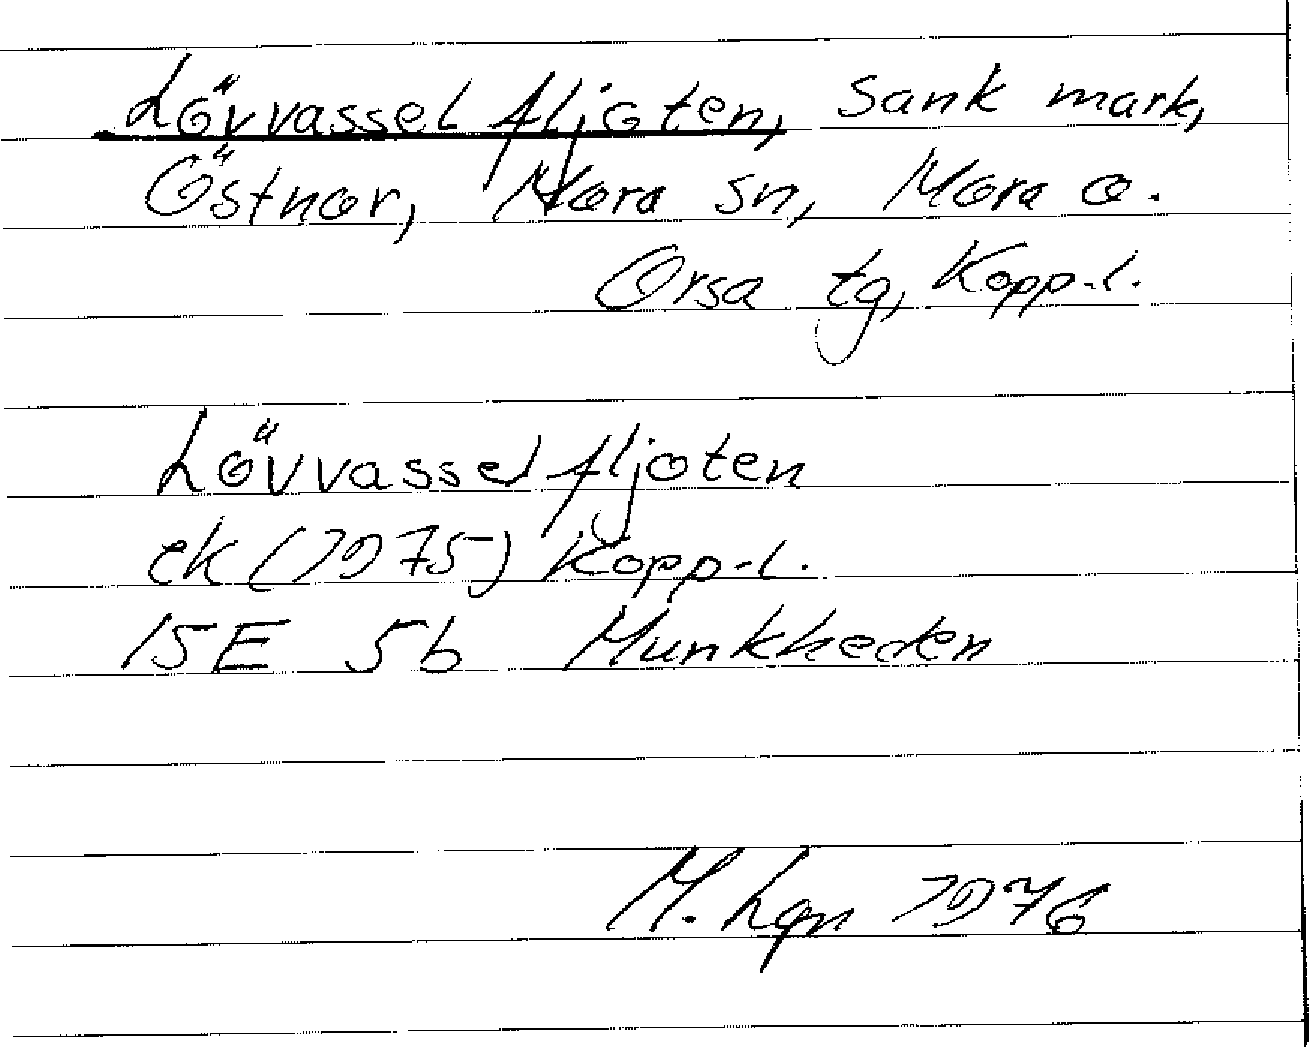 Lövvasselfljoten, Sank mark,
Östnor, Mora sn, Mora o.
Orsa tg, Kopp.l.
Lövvasselfljoten
ek (1975) Kopp.l.
15E 5b Munkheden
M. Lgn 1976